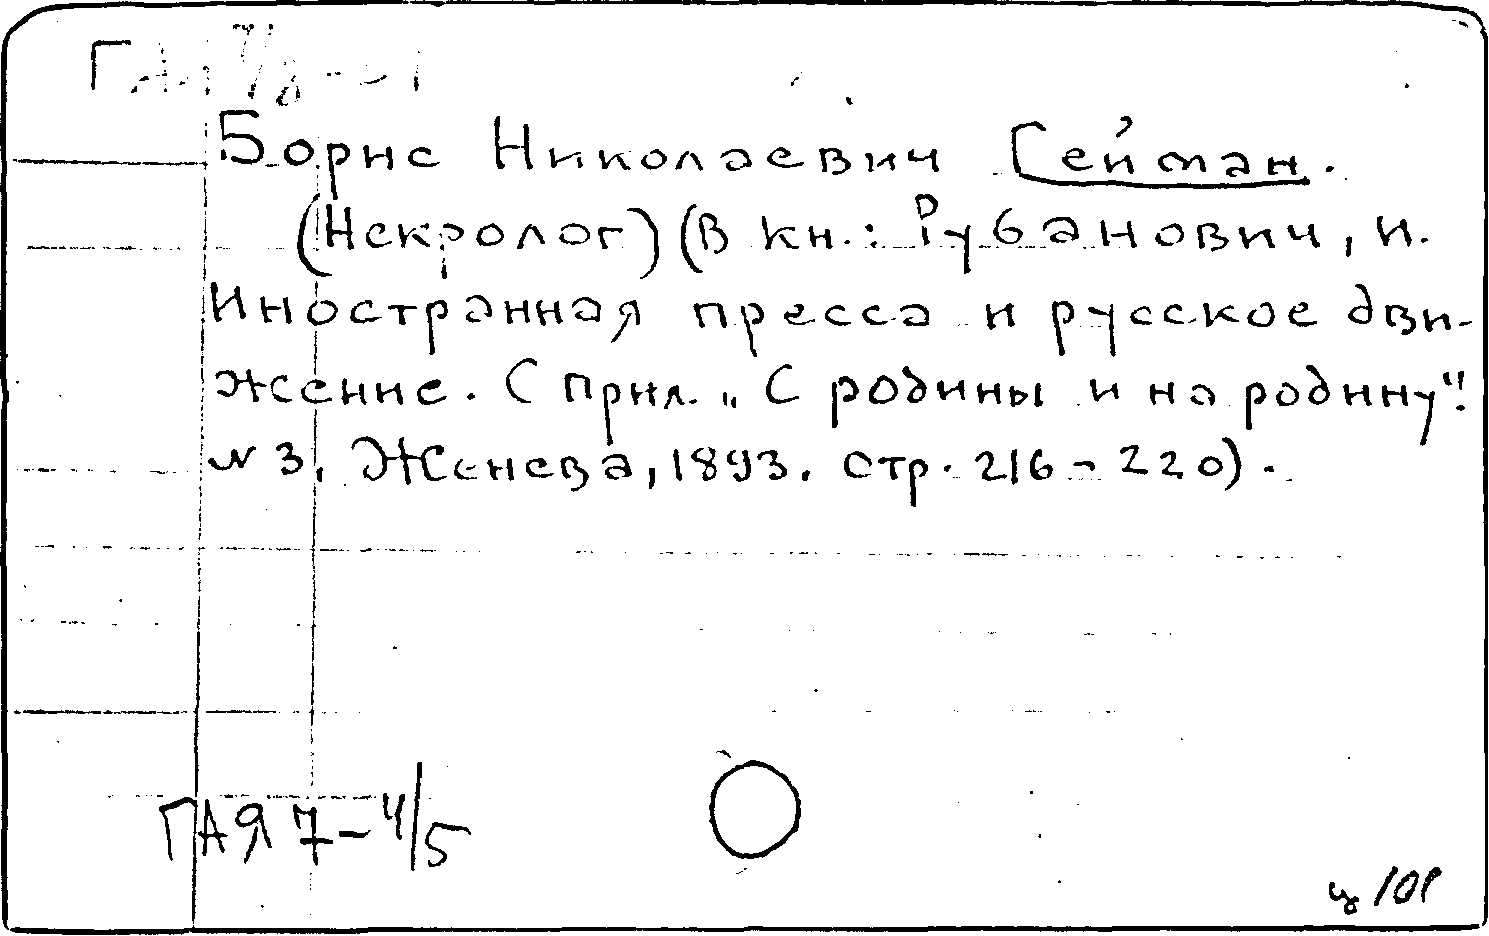 Борис Николаевич Гейман.
(Некролог) (В кн.: Рубанович, И.
Иностранная пресса и русское дви-
жение. С прил. „С родины и на родину".
№ 3. Женева, 1893. стр. 216-220).
ГАЯ 7-4/5